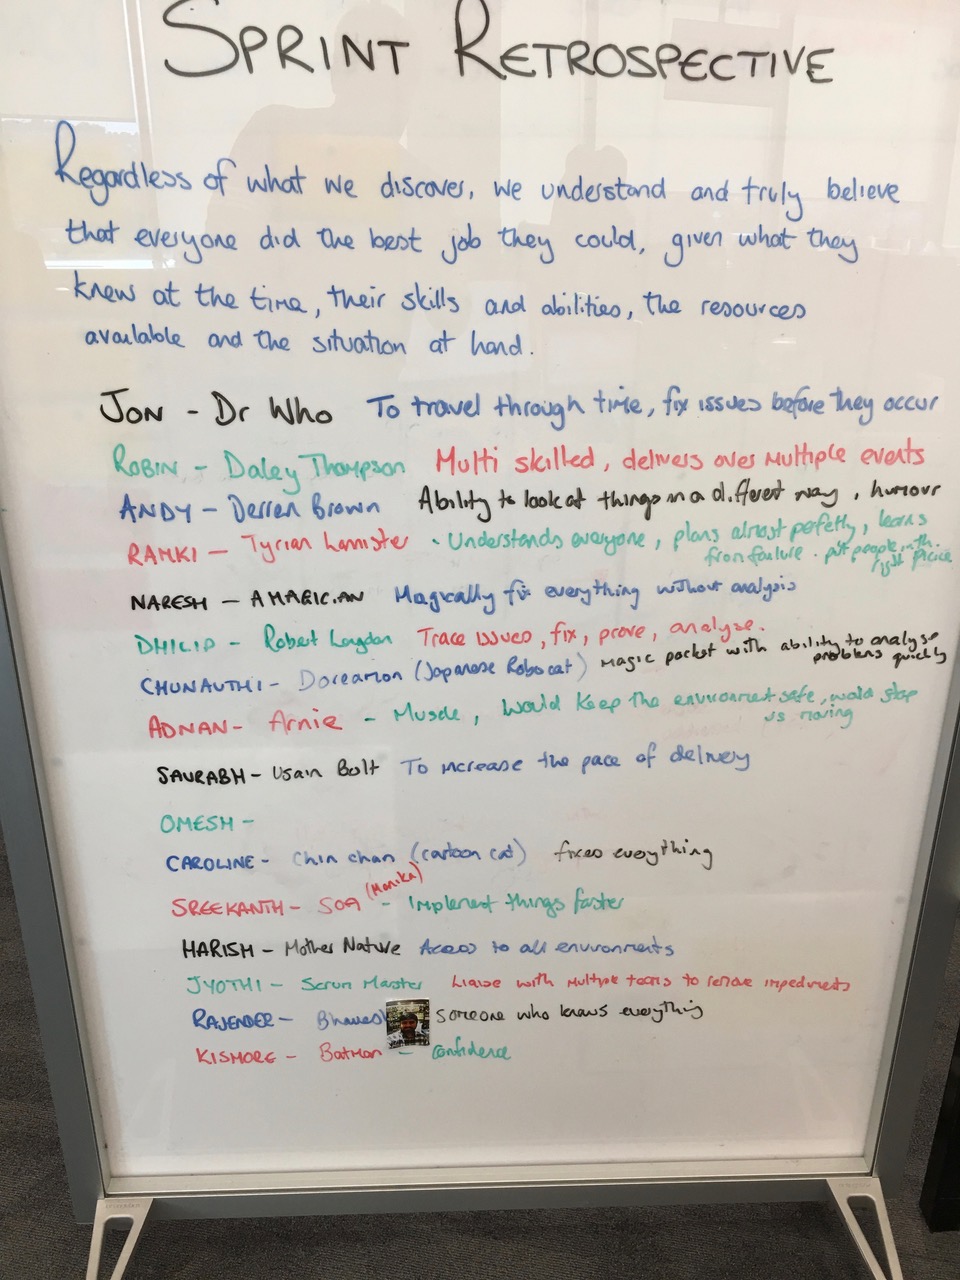 SPRINT RETROSPECTIVE
Regardless of what we discover, we understand and truly believe
that everyone did the best job they could, given what they
knew at the time, their skills and abilities, the resources
available and the situation at hand.
JON - Dr Who To travel through time, fix issues before they occur
ROBIN - Daley Thompson Multi skilled, delivers over multiple events
ANDY - Derren Brown Ability to look at things in a different way, humour
RAMKI - Tyrian Lannister - Understands everyone, plans almost perfetly, learns
from failure. put people in the
right place
NARESH - A MAGICIAN Magically fix everything without analysis
DHILIP - Robert Langdon Trace issues, fix, prove, analyse.
CHUNAUTHI - Doreamon (Japanese Robo cat) magic pocket with ability to analyse
problems quickly
ADNAN - Arnie - Muscle, Would keep the environment safe, would stop
us moving
SAURABH - Usain Bolt To increase the pace of delivery
OMESH -
CAROLINE - Chin chan (cartoon cat) fixes everything
(Monika)
SREEKANTH - - Implement things faster
HARISH - Mother Nature Access to all environments
JYOTHI - Scrum Master Liaise with multiple teams to remove impediments
RAJENDER - Someone who knows everything
KISHORE - Batman - Confidence